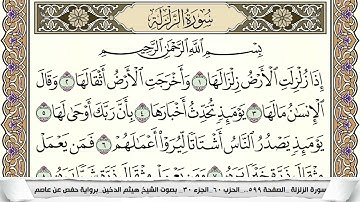 سُورَةُ الزَّلْزَلَةِ
بِسْمِ ٱللَّهِ ٱلرَّحْمَٰنِ ٱلرَّحِيمِ
إِذَا زُلْزِلَتِ ٱلْأَرْضُ زِلْزَالَهَا ١ وَأَخْرَجَتِ ٱلْأَرْضُ أَثْقَالَهَا ٢ وَقَالَ
ٱلْإِنسَٰنُ مَا لَهَا ٣ يَوْمَئِذٍ تُحَدِّثُ أَخْبَارَهَا ٤ بِأَنَّ رَبَّكَ أَوْحَىٰ لَهَا ٥
يَوْمَئِذٍ يَصْدُرُ ٱلنَّاسُ أَشْتَاتًا لِّيُرَوْا۟ أَعْمَٰلَهُمْ ٦ فَمَن يَعْمَلْ
سورة الزلزلة .. الصفحة ٥٩٩.. الحزب ٦٠ ..الجزء ٣٠ .. بصوت الشيخ هيثم الدخين. برواية حفص عن عاصم